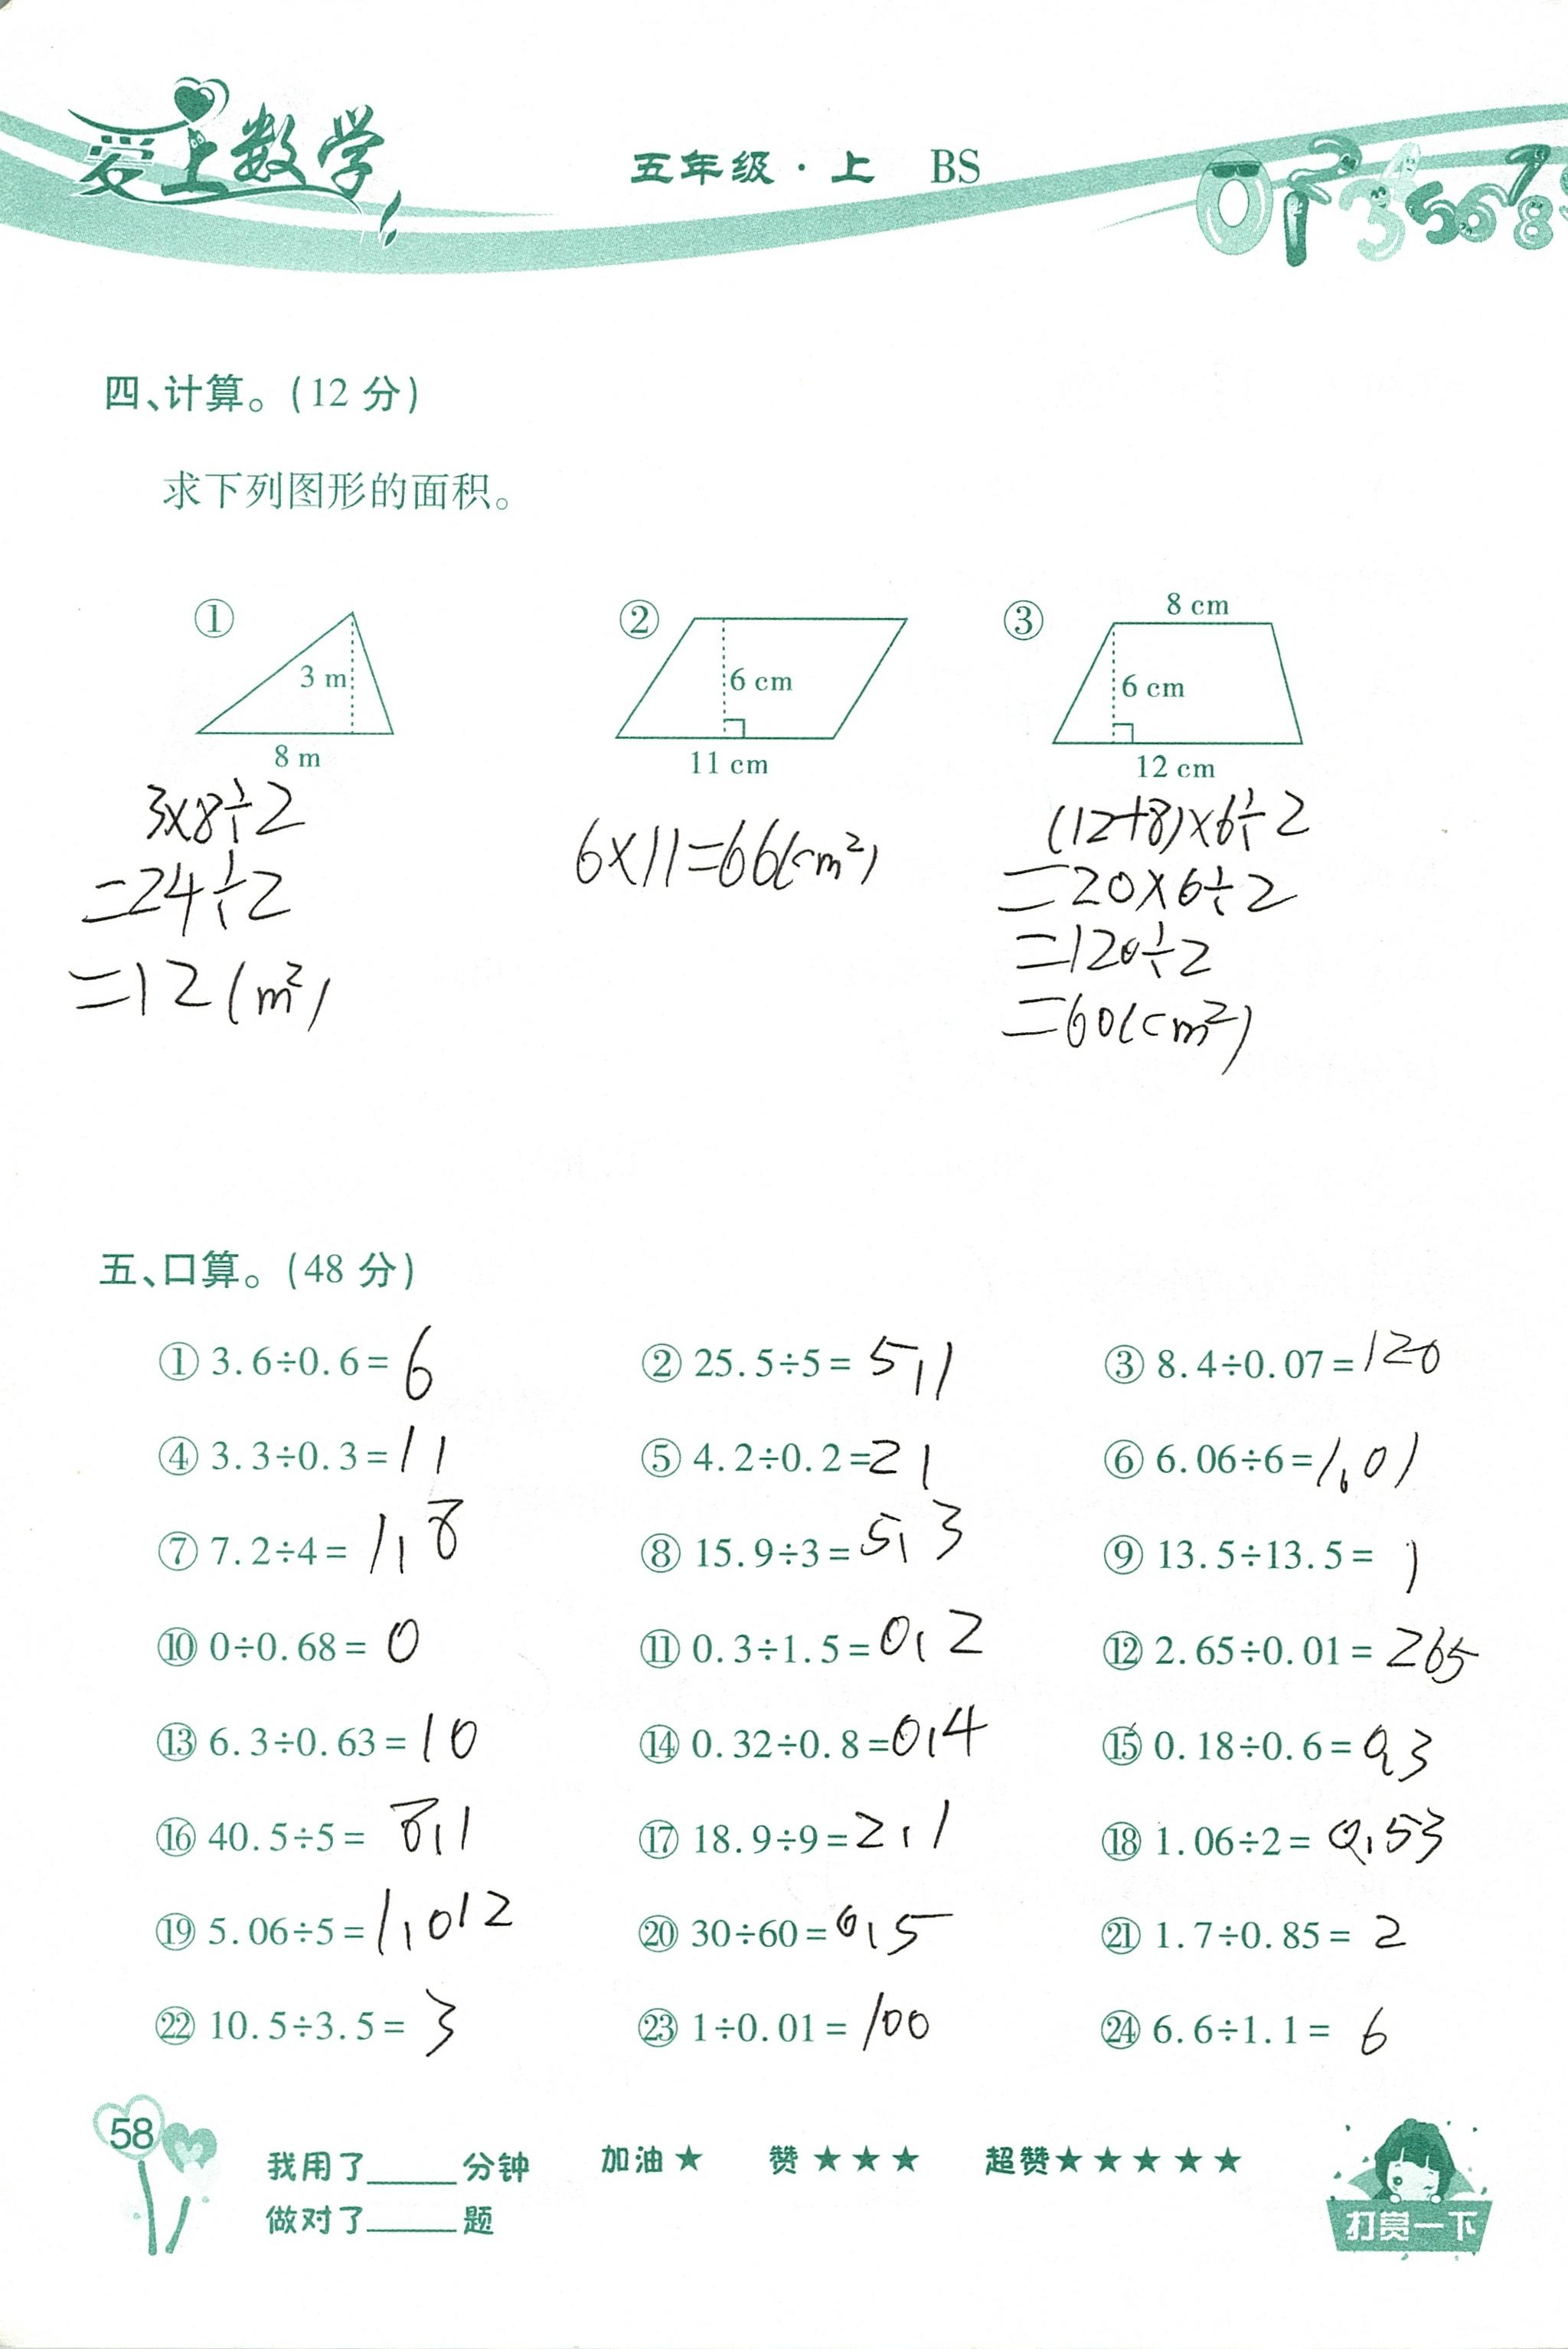 爱上数学
五年级·上 BS
四、计算。(12 分)
求下列图形的面积。
① 3 m 8 m
② 6 cm 11 cm
③ 8 cm 6 cm 12 cm
3×8÷2
=24÷2
=12(m²)
6×11=66(cm²)
(12+8)×6÷2
=20×6÷2
=120÷2
=60(cm²)
五、口算。(48 分)
① 3.6÷0.6= 6 ② 25.5÷5= 5.1 ③ 8.4÷0.07= 120
④ 3.3÷0.3= 11 ⑤ 4.2÷0.2= 21 ⑥ 6.06÷6= 1.01
⑦ 7.2÷4= 1.8 ⑧ 15.9÷3= 5.3 ⑨ 13.5÷13.5= 1
⑩ 0÷0.68= 0 ⑪ 0.3÷1.5= 0.2 ⑫ 2.65÷0.01= 265
⑬ 6.3÷0.63= 10 ⑭ 0.32÷0.8= 0.4 ⑮ 0.18÷0.6= 0.3
⑯ 40.5÷5= 8.1 ⑰ 18.9÷9= 2.1 ⑱ 1.06÷2= 0.53
⑲ 5.06÷5= 1.012 ⑳ 30÷60= 0.5 ㉑ 1.7÷0.85= 2
㉒ 10.5÷3.5= 3 ㉓ 1÷0.01= 100 ㉔ 6.6÷1.1= 6
58
我用了____分钟 加油★ 赞★★★ 超赞★★★★★
做对了____题
打赏一下